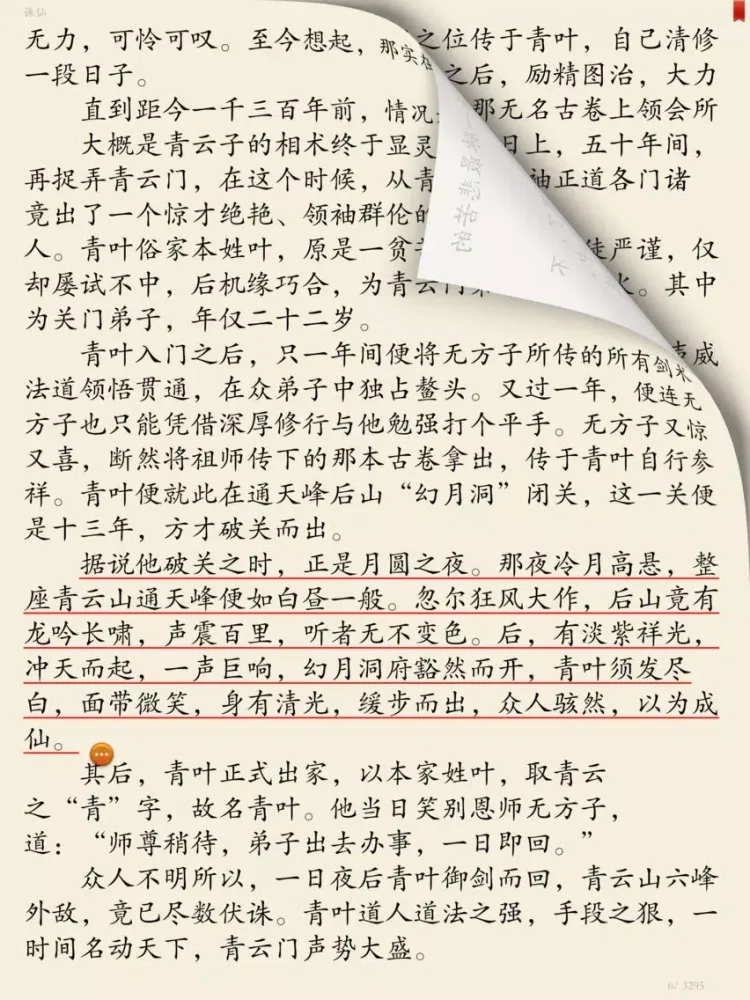 诛仙
无力，可怜可叹。至今想起，那实在 之位传于青叶，自己清修
一段日子。 之后，励精图治，大力
直到距今一千三百年前，情况 那无名古卷上领会所
大概是青云子的相术终于显灵 日上，五十年间，
再捉弄青云门，在这个时候，从青 袖正道各门诸
竟出了一个惊才绝艳、领袖群伦的
人。青叶俗家本姓叶，原是一贫 徒严谨，仅
却屡试不中，后机缘巧合，为青云门 火。其中
为关门弟子，年仅二十二岁。
青叶入门之后，只一年间便将无方子所传的所有剑术 声威
法道领悟贯通，在众弟子中独占鳌头。又过一年，便连无
方子也只能凭借深厚修行与他勉强打个平手。无方子又惊
又喜，断然将祖师传下的那本古卷拿出，传于青叶自行参
祥。青叶便就此在通天峰后山“幻月洞”闭关，这一关便
是十三年，方才破关而出。
据说他破关之时，正是月圆之夜。那夜冷月高悬，整
座青云山通天峰便如白昼一般。忽尔狂风大作，后山竟有
龙吟长啸，声震百里，听者无不变色。后，有淡紫祥光，
冲天而起，一声巨响，幻月洞府豁然而开，青叶须发尽
白，面带微笑，身有清光，缓步而出，众人骇然，以为成
仙。
其后，青叶正式出家，以本家姓叶，取青云
之“青”字，故名青叶。他当日笑别恩师无方子，
道：“师尊稍待，弟子出去办事，一日即回。”
众人不明所以，一日夜后青叶御剑而回，青云山六峰
外敌，竟已尽数伏诛。青叶道人道法之强，手段之狠，一
时间名动天下，青云门声势大盛。
6/ 3295